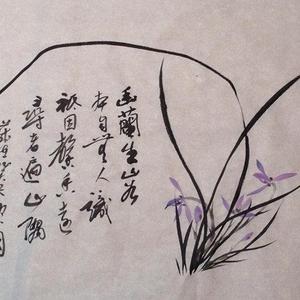 幽蘭生山谷
本自無人識
祗因馨香遠
尋者遍山隅